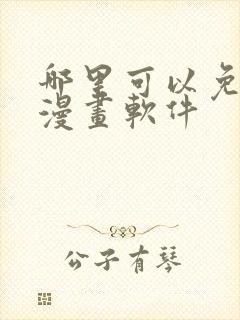 哪里可以免
漫畫軟件
公子有琴